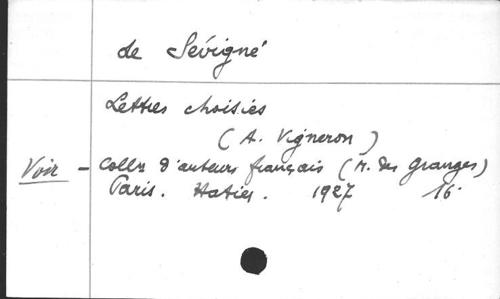 de Sévigné
Lettres choisies
( A. Vigneron )
Voir - Collon d'auteurs français ( M. des Granges )
Paris. Hatier. 1927 16°